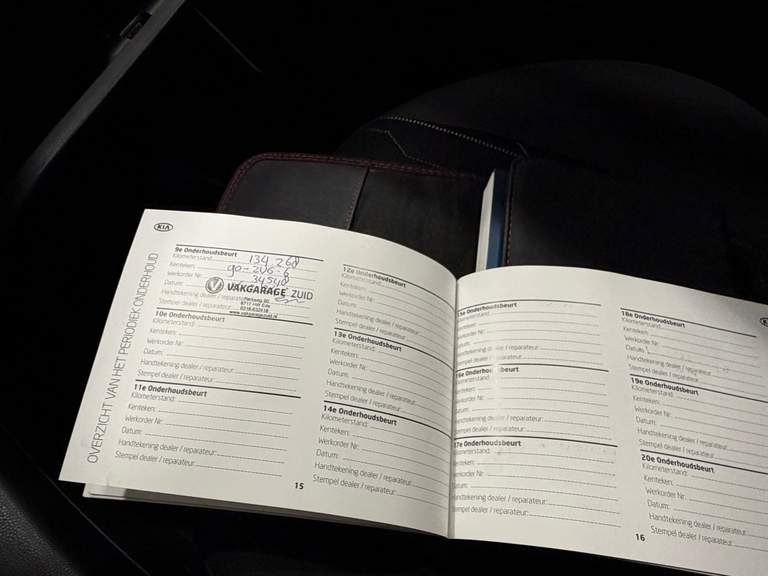 KIA
OVERZICHT VAN HET PERIODIEK ONDERHOUD
9e Onderhoudsbeurt
Kilometerstand: 134 268
Kenteken: 90-ZVG-6
Werkorder Nr.: 34540
Datum:
VAKGARAGE ZUID
Handtekening dealer / reparateur:
Stempel dealer / reparateur:
www.vakgaragezuid.nl
10e Onderhoudsbeurt
Kilometerstand:
Kenteken:
Werkorder Nr.:
Datum:
Handtekening dealer / reparateur:
Stempel dealer / reparateur:
11e Onderhoudsbeurt
Kilometerstand:
Kenteken:
Werkorder Nr.:
Datum:
Handtekening dealer / reparateur:
Stempel dealer / reparateur:
12e Onderhoudsbeurt
Kilometerstand:
Kenteken:
Werkorder Nr.:
Datum:
Handtekening dealer / reparateur:
Stempel dealer / reparateur:
13e Onderhoudsbeurt
Kilometerstand:
Kenteken:
Werkorder Nr.:
Datum:
Handtekening dealer / reparateur:
Stempel dealer / reparateur:
14e Onderhoudsbeurt
Kilometerstand:
Kenteken:
Werkorder Nr.:
Datum:
Handtekening dealer / reparateur:
Stempel dealer / reparateur:
15
15e Onderhoudsbeurt
Kilometerstand:
Kenteken:
Werkorder Nr.:
Datum:
Handtekening dealer / reparateur:
Stempel dealer / reparateur:
16e Onderhoudsbeurt
Kilometerstand:
Kenteken:
Werkorder Nr.:
Datum:
Handtekening dealer / reparateur:
Stempel dealer / reparateur:
17e Onderhoudsbeurt
Kilometerstand:
Kenteken:
Werkorder Nr.:
Datum:
Handtekening dealer / reparateur:
Stempel dealer / reparateur:
18e Onderhoudsbeurt
Kilometerstand:
Kenteken:
Werkorder Nr.:
Datum:
Handtekening dealer / reparateur:
Stempel dealer / reparateur:
19e Onderhoudsbeurt
Kilometerstand:
Kenteken:
Werkorder Nr.:
Datum:
Handtekening dealer / reparateur:
Stempel dealer / reparateur:
20e Onderhoudsbeurt
Kilometerstand:
Kenteken:
Werkorder Nr.:
Datum:
Handtekening dealer / reparateur:
Stempel dealer / reparateur:
16